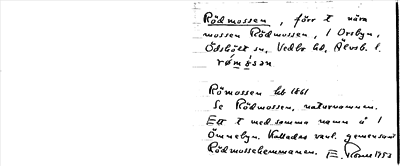 Rödmossen, förr t nära
mossen Rödmossen, i Orsbyn,
Ödsbölt sn, Vedbo hd, Älvsb. l.
Römossen hb 1861
Se Rödmossen, naturnamnen.
Ett t med samma namn å i
Ömnebyn. Kallades vanl. gemensamt
Rödmossehemmanen. 1953